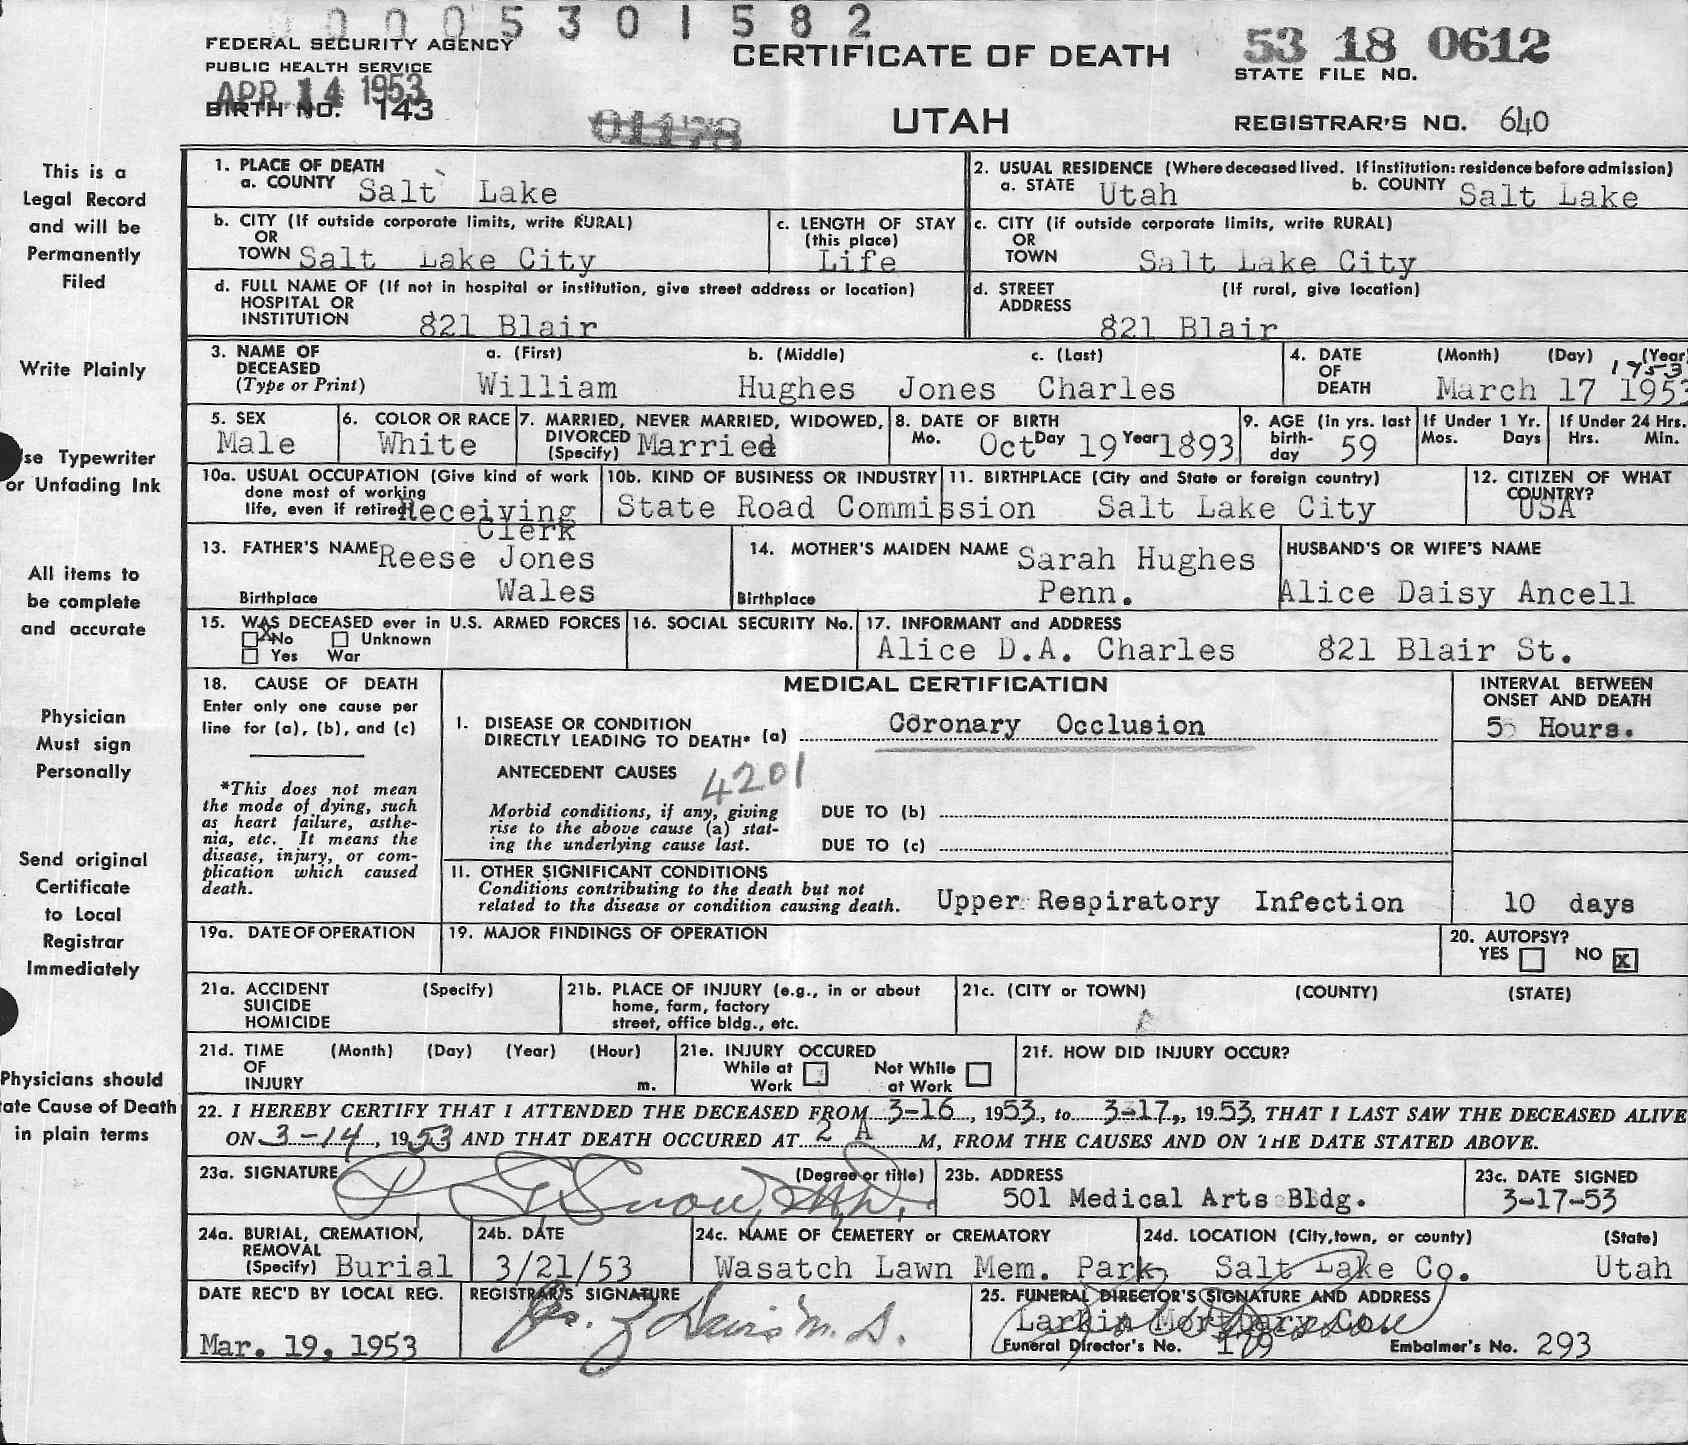 0005301582
FEDERAL SECURITY AGENCY
PUBLIC HEALTH SERVICE
APR 14 1953
BIRTH NO. 143
01178
CERTIFICATE OF DEATH
UTAH
53 18 0612
STATE FILE NO.
REGISTRAR'S NO. 640
This is a
Legal Record
and will be
Permanently
Filed
Write Plainly
se Typewriter
or Unfading Ink
All items to
be complete
and accurate
Physician
Must sign
Personally
Send original
Certificate
to Local
Registrar
Immediately
Physicians should
ate Cause of Death
in plain terms
1. PLACE OF DEATH
a. COUNTY Salt Lake
2. USUAL RESIDENCE (Where deceased lived. If institution: residence before admission)
a. STATE Utah b. COUNTY Salt Lake
b. CITY (If outside corporate limits, write RURAL)
OR
TOWN Salt Lake City
c. LENGTH OF STAY
(this place)
Life
c. CITY (if outside corporate limits, write RURAL)
OR
TOWN Salt Lake City
d. FULL NAME OF (If not in hospital or institution, give street address or location)
HOSPITAL OR
INSTITUTION 821 Blair
d. STREET (If rural, give location)
ADDRESS
821 Blair
3. NAME OF a. (First) b. (Middle) c. (Last)
DECEASED
(Type or Print) William Hughes Jones Charles
4. DATE (Month) (Day) (Year)
OF 1953
DEATH March 17 1953
5. SEX
Male
6. COLOR OR RACE
White
7. MARRIED, NEVER MARRIED, WIDOWED,
DIVORCED
(Specify) Married
8. DATE OF BIRTH
Mo. Oct Day 19 Year 1893
9. AGE (in yrs. last
birth-
day 59
If Under 1 Yr.
Mos. Days
If Under 24 Hrs.
Hrs. Min.
10a. USUAL OCCUPATION (Give kind of work
done most of working
life, even if retired) Receiving
Clerk
10b. KIND OF BUSINESS OR INDUSTRY
State Road Commission
11. BIRTHPLACE (City and State or foreign country)
Salt Lake City
12. CITIZEN OF WHAT
COUNTRY?
USA
13. FATHER'S NAME Reese Jones
Birthplace Wales
14. MOTHER'S MAIDEN NAME Sarah Hughes
Birthplace Penn.
HUSBAND'S OR WIFE'S NAME
Alice Daisy Ancell
15. WAS DECEASED ever in U.S. ARMED FORCES
X No Unknown
Yes War
16. SOCIAL SECURITY No.
17. INFORMANT and ADDRESS
Alice D.A. Charles 821 Blair St.
18. CAUSE OF DEATH
Enter only one cause per
line for (a), (b), and (c)
*This does not mean
the mode of dying, such
as heart failure, asthe-
nia, etc. It means the
disease, injury, or com-
plication which caused
death.
MEDICAL CERTIFICATION
INTERVAL BETWEEN
ONSET AND DEATH
I. DISEASE OR CONDITION
DIRECTLY LEADING TO DEATH* (a) Coronary Occlusion
5 Hours.
ANTECEDENT CAUSES 4201
Morbid conditions, if any, giving
rise to the above cause (a) stat-
ing the underlying cause last.
DUE TO (b)
DUE TO (c)
11. OTHER SIGNIFICANT CONDITIONS
Conditions contributing to the death but not
related to the disease or condition causing death.
Upper Respiratory Infection
10 days
19a. DATE OF OPERATION
19. MAJOR FINDINGS OF OPERATION
20. AUTOPSY?
YES NO X
21a. ACCIDENT (Specify)
SUICIDE
HOMICIDE
21b. PLACE OF INJURY (e.g., in or about
home, farm, factory
street, office bldg., etc.
21c. (CITY or TOWN) (COUNTY) (STATE)
21d. TIME (Month) (Day) (Year) (Hour)
OF
INJURY m.
21e. INJURY OCCURED
While at Not While
Work at Work
21f. HOW DID INJURY OCCUR?
22. I HEREBY CERTIFY THAT I ATTENDED THE DECEASED FROM 3-16, 1953, to 3-17, 1953, THAT I LAST SAW THE DECEASED ALIVE
ON 3-14, 1953 AND THAT DEATH OCCURED AT 2 A M, FROM THE CAUSES AND ON THE DATE STATED ABOVE.
23a. SIGNATURE (Degree or title)
Snow, M.D.
23b. ADDRESS
501 Medical Arts Bldg.
23c. DATE SIGNED
3-17-53
24a. BURIAL, CREMATION,
REMOVAL
(Specify) Burial
24b. DATE
3/21/53
24c. NAME OF CEMETERY or CREMATORY
Wasatch Lawn Mem. Park,
24d. LOCATION (City, town, or county) (State)
Salt Lake Co. Utah
DATE REC'D BY LOCAL REG.
Mar. 19, 1953
REGISTRAR'S SIGNATURE
Davis M.D.
25. FUNERAL DIRECTOR'S SIGNATURE AND ADDRESS
Larkin Mortuary Co.
Funeral Director's No. 179 Embalmer's No. 293